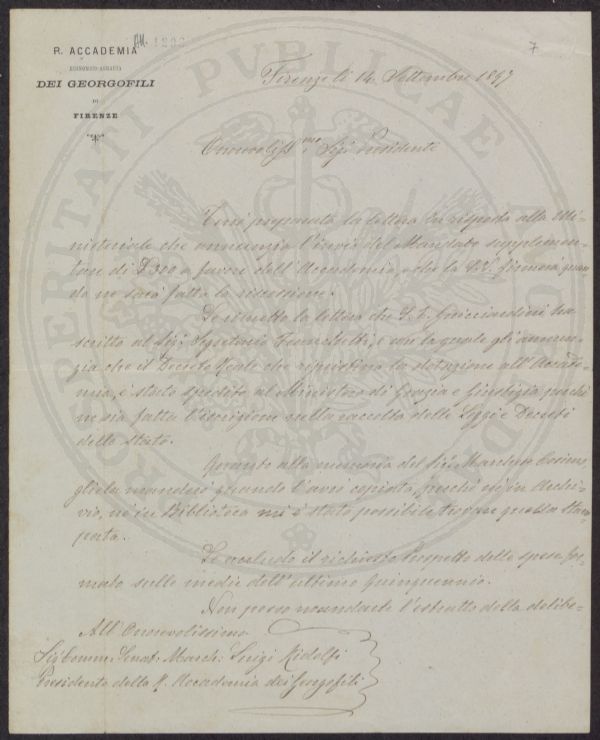 R. ACCADEMIA
ECONOMICO-AGRARIA
DEI GEORGOFILI
DI
FIRENZE
7
Firenze li 14 Settembre 1897
Onorevoliss.mo Sig. Presidente
Trovi preparata la lettera in risposta alla Mi-
nisteriale che annunzia l'invio del Mandato supplemen-
tare di £ 300 a favore dell'Accademia, che la S.V. firmerà quan-
do ne sarà fatta la riscossione.
Le rimetto la lettera che S. E. Guicciardini ha
scritto al Sig. Segretario Franchetti, e con la quale gli annun-
zia che il Decreto Reale che ripristina la dotazione all'Accade-
mia, è stato spedito al Ministero di Grazia e Giustizia perchè
ne sia fatta l'iscrizione nella raccolta delle Leggi e Decreti
dello Stato.
Quanto alla memoria del Sig. Marchese Cosimo,
gliela manderò quando l'avrò copiata, perchè nè in Archi-
vio, nè in Biblioteca mi è stato possibile trovare questa stam-
pata.
Le accludo il richiesto Prospetto delle spese for-
mato sulle medie dell'ultimo quinquennio.
Non posso mandarle l'estratto della delibe-
All'Onorevolissimo
Sig. Comm. Senat. March. Luigi Ridolfi
Presidente della R. Accademia dei Georgofili
PROSPERITATI PUBLICAE AUG